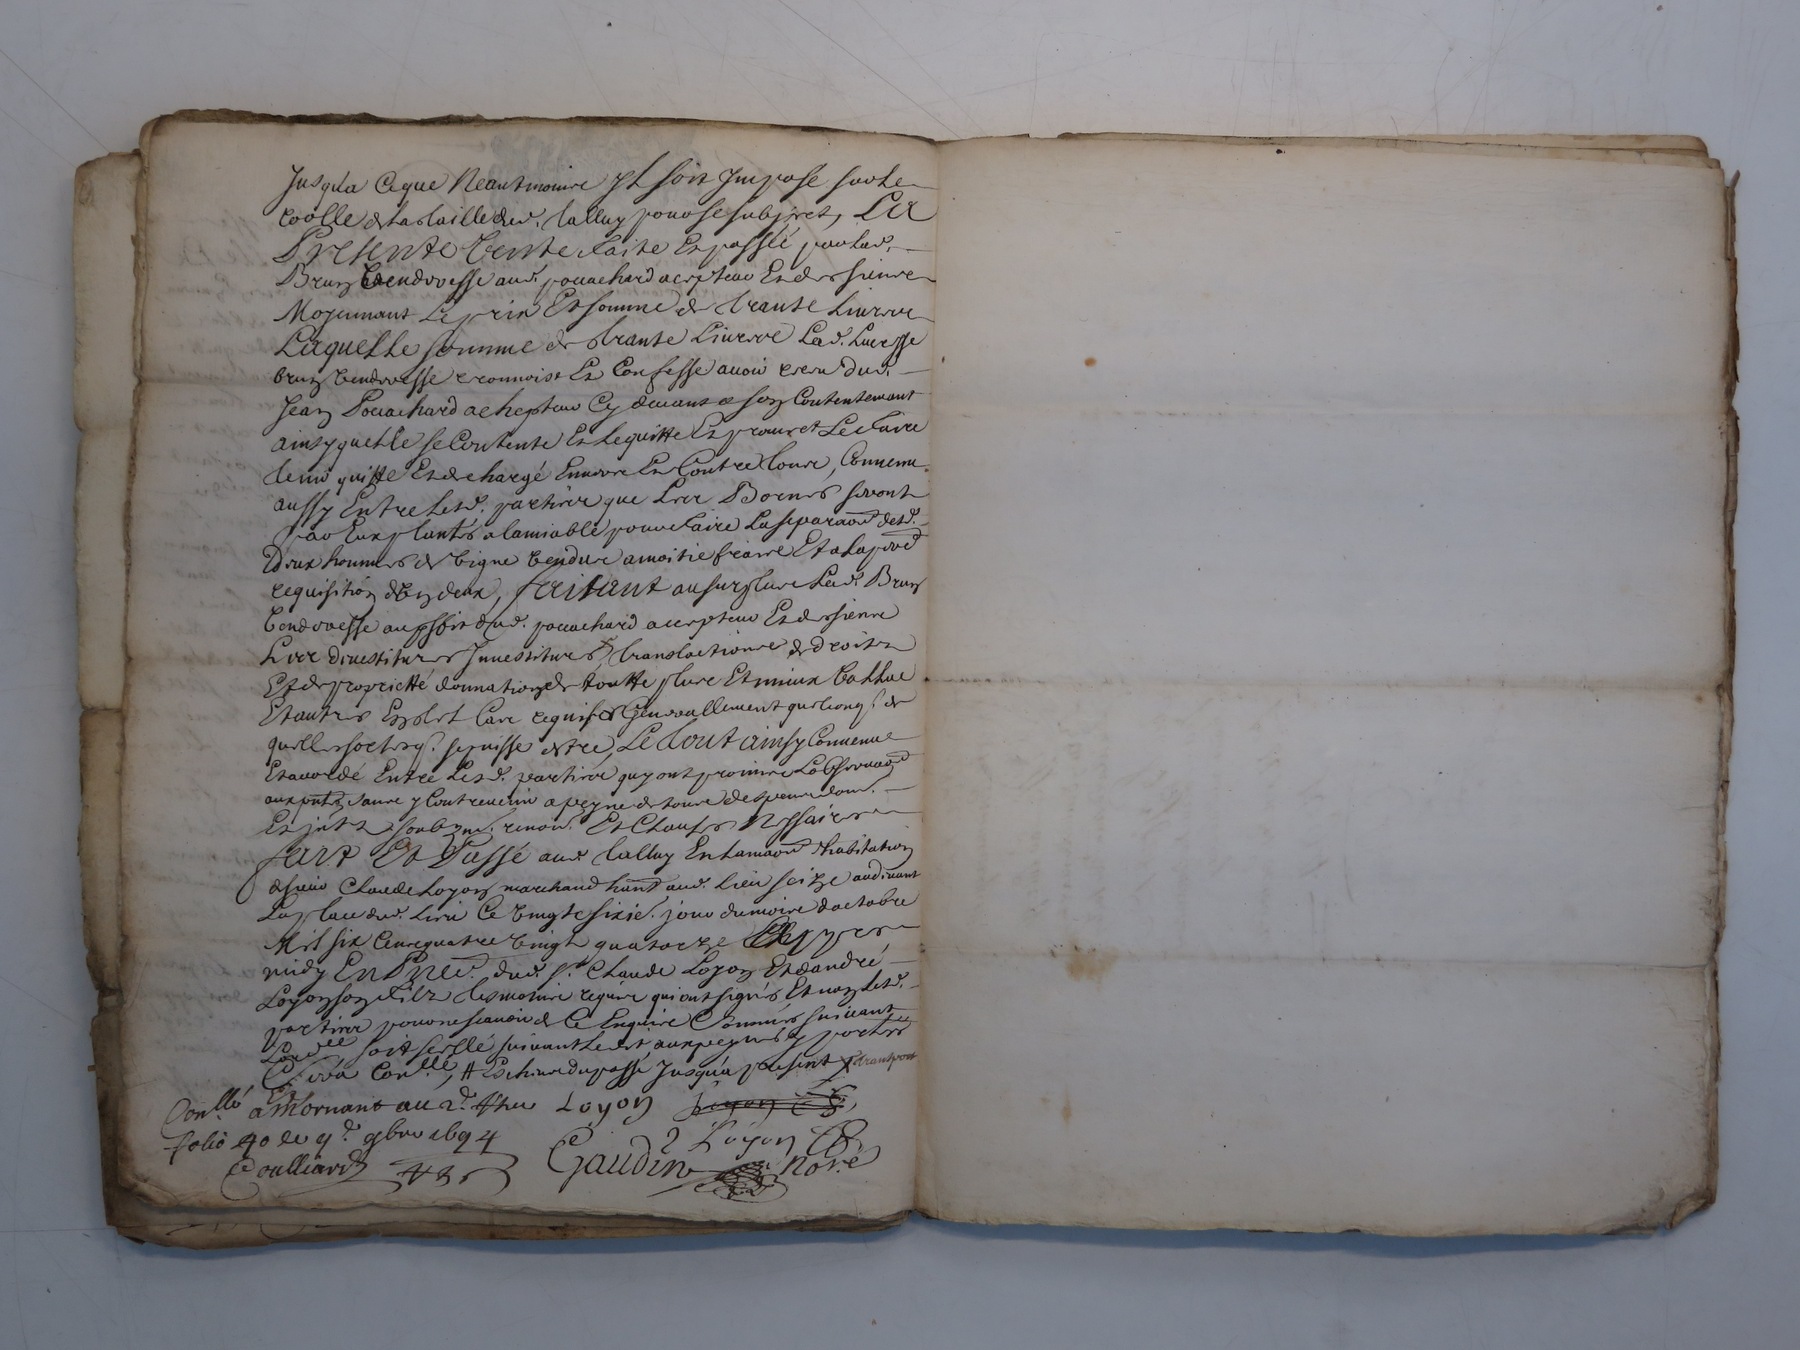 Jusqua Ceque Neantmoins Jl soit Jmpose surle
roolle de la taille dud. talluy pour se subjret, La
Presente Vente faite Et passé par lad.
Brun Venderesse aud. pouachard acepteur Et des siens
Moyennant Le prix Et somme de trante Livres
Laquelle somme de trante Livres Lad. Lucresse
brun venderesse reconnoist Et Confesse avoir receu dud.
Jean Pouachard achepteur Cy devant a son Contentemant
ainsy quelle se Contente Et Lequitte Et promet Le faire
tenir quitte Et dechargé Envers Et Contre tous, Convenu
aussy Entre Lesd. parties que Les Bornes seront
par Eux plantés alamiable pour faire La separaon desd.
deux hommes de Vigne Vendue amoitie fraire Et a la pred
requisition dEn deux, faisant ausurplus Lad. Brun
Venderesse au proffit dud. pouachard acepteur Et des siens
Les divestitures Jnvestitures translactions de droits
Et de proprietté donnation de toutte plus Et mieux Vallue
Et autres En tel Cas requises Generallement quelconq. de
quelle sorte q. se puisse estre, Le tout ainsy Convenu
Et acordé Entre Les d. parties qui ont promis Lobservaon
aux pntes sans y Contrevenir a peyne de tous despens dom.
Et jnts soubzm. renon. Et Clauses Nessaires
fait Et Passé aud. talluy En la maon dhabitation
de sieur Claude Loyon marchand hant aud. Lieu seitze audivant
La place dud. Lieu Ce Vingtesixie. jour du mois doctobre
Mil six Cens quatre Vingt quatorze appres
midy En Pnce. dud. sr. Claude Loyon Et dandré
Loyon son fils tesmoins requis qui ont signés Et non Lesd.
parties pour ne scavoir de Ce Enquis Sommés suivant
Lordce, soit sellé suivant Ledit aux peynes y portés
Et sera Conllé, # Eschus du passé Jusqua present
Conllé a Mornant au 2d. Loyon
folio 40 le 9bre 1694 Loyon
Coulliard Gaudin no.re